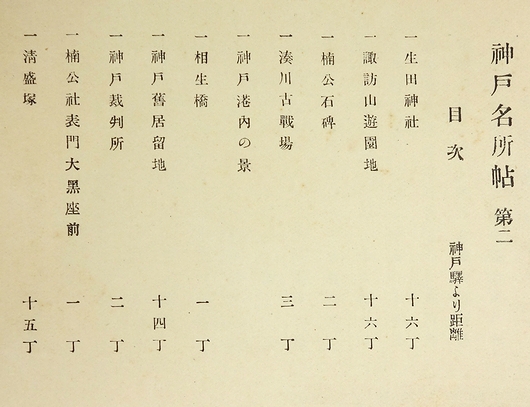 神戸名所帖 第二
目次 神戸驛より距離
一生田神社 十六丁
一諏訪山遊園地 十六丁
一楠公石碑 二丁
一湊川古戰場 三丁
一神戸港內の景
一相生橋 一丁
一神戸舊居留地 十四丁
一神戸裁判所 二丁
一楠公社表門大黑座前 一丁
一淸盛塚 十五丁